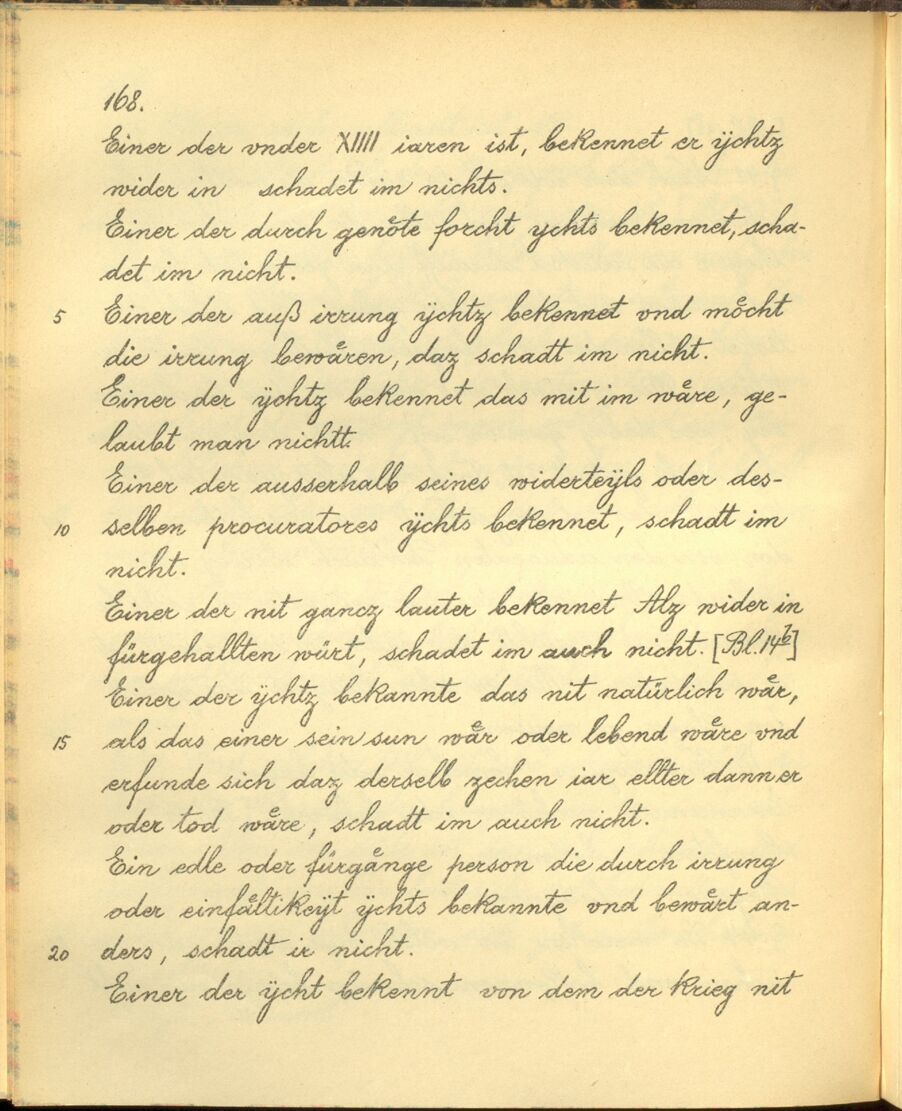 168.
Einer der vnder XIIII iaren ist, bekennet er ÿchtz
wider in schadet im nichts.
Einer der durch genöte forcht ychts bekennet, scha-
det im nicht.
5 Einer der auß irrung ÿchtz bekennet vnd moͤcht
die irrung bewaͤren, daz schadt im nicht.
Einer der ÿchtz bekennet das mit im waͤre, ge-
laubt man nichtt.
Einer der ausserhalb seines widerteÿls oder des-
10 selben procuratores ÿchts bekennet, schadt im
nicht.
Einer der nit gancz lauter bekennet Alz wider in
fürgehallten würt, schadet im auch nicht. [Bl. 14b]
Einer der ÿchtz bekannte das nit natürlich waͤr,
15 als das einer sein sun waͤr oder lebend waͤre vnd
erfunde sich daz derselb zechen iar ellter dann er
oder tod waͤre, schadt im auch nicht.
Ein edle oder fürgaͤnge person die durch irrung
oder einfaͤltikeÿt ÿchts bekannte vnd bewaͤrt an-
20 ders, schadt ir nicht.
Einer der ÿcht bekennt von dem der krieg nit